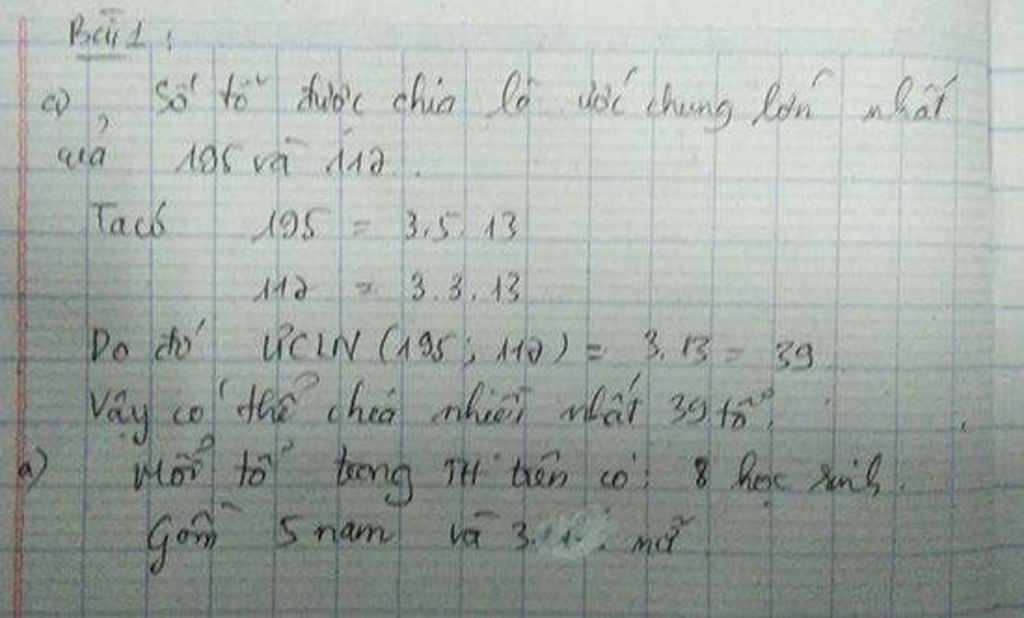 Bài 1:
a) Số tổ được chia là ước chung lớn nhất
của 195 và 117.
Ta có 195 = 3.5.13
117 = 3.3.13
Do đó ƯCLN (195; 117) = 3.13 = 39
Vậy có thể chia nhiều nhất 39 tổ.
a) Mỗi tổ trong TH trên có: 8 học sinh.
Gồm 5 nam và 3 nữ